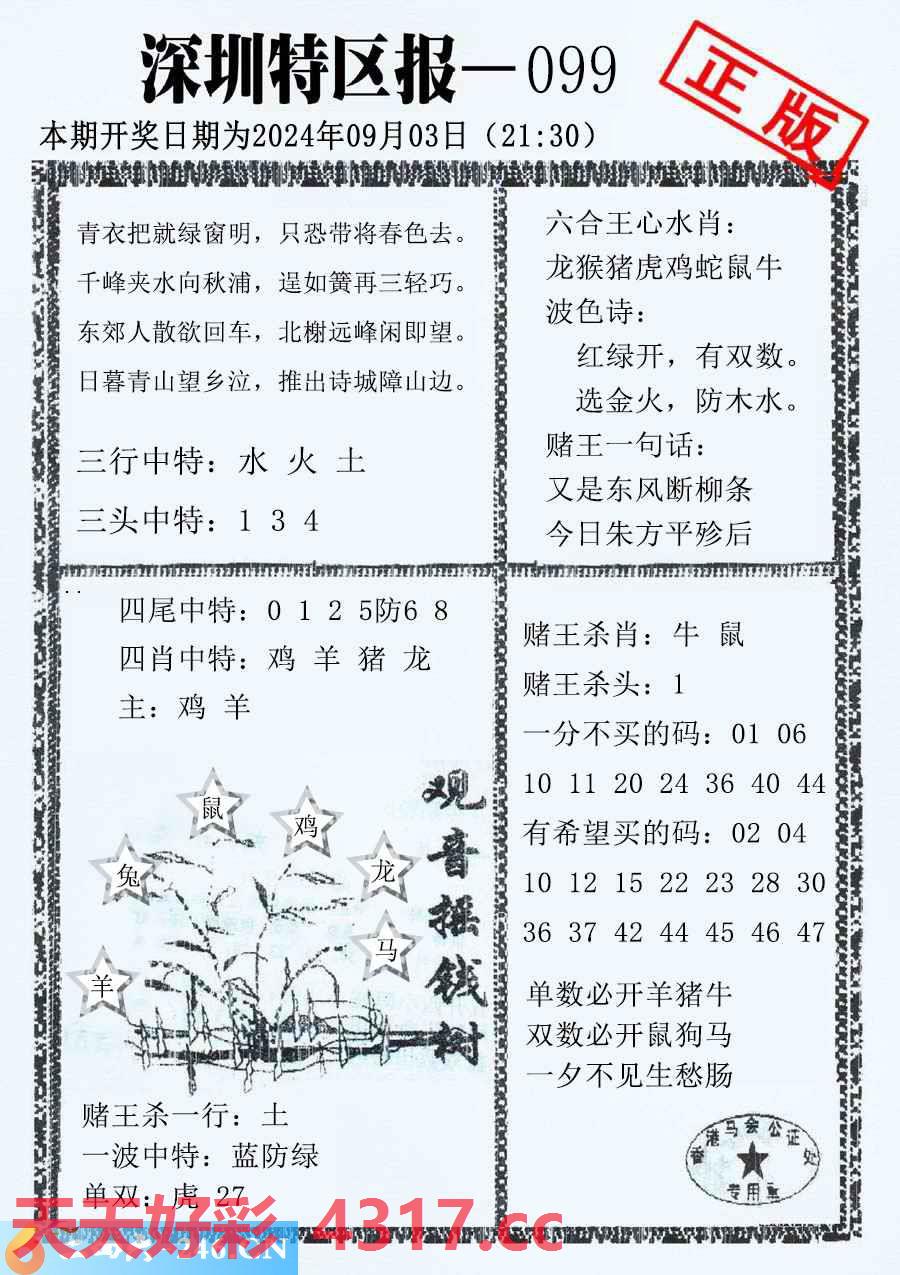 深圳特区报—099
正版
本期开奖日期为2024年09月03日（21:30）
青衣把就绿窗明，只恐带将春色去。
千峰夹水向秋浦，逞如簧再三轻巧。
东郊人散欲回车，北榭远峰闲即望。
日暮青山望乡泣，推出诗城障山边。
三行中特：水 火 土
三头中特：1 3 4
六合王心水肖：
龙猴猪虎鸡蛇鼠牛
波色诗：
红绿开，有双数。
选金火，防木水。
赌王一句话：
又是东风断柳条
今日朱方平殄后
四尾中特：0 1 2 5防6 8
四肖中特：鸡 羊 猪 龙
主：鸡 羊
鼠
鸡
兔
龙
马
羊
观音摇钱树
赌王杀一行：土
一波中特：蓝防绿
单双：虎 27
赌王杀肖：牛 鼠
赌王杀头：1
一分不买的码：01 06
10 11 20 24 36 40 44
有希望买的码：02 04
10 12 15 22 23 28 30
36 37 42 44 45 46 47
单数必开羊猪牛
双数必开鼠狗马
一夕不见生愁肠
香港马会公证处
专用章
天天好彩 4317.cc